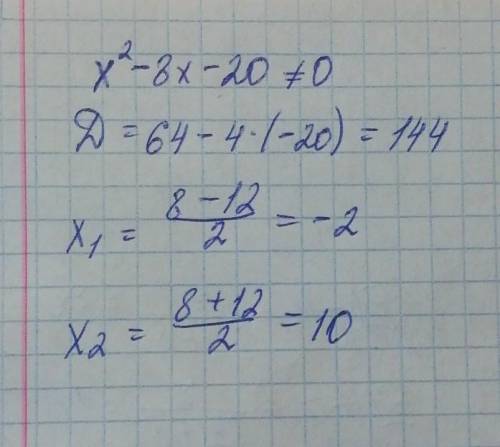 x² - 8x - 20 ≠ 0
Д = 64 - 4 · (-20) = 144
x₁ = (8 - 12)/2 = -2
x₂ = (8 + 12)/2 = 10